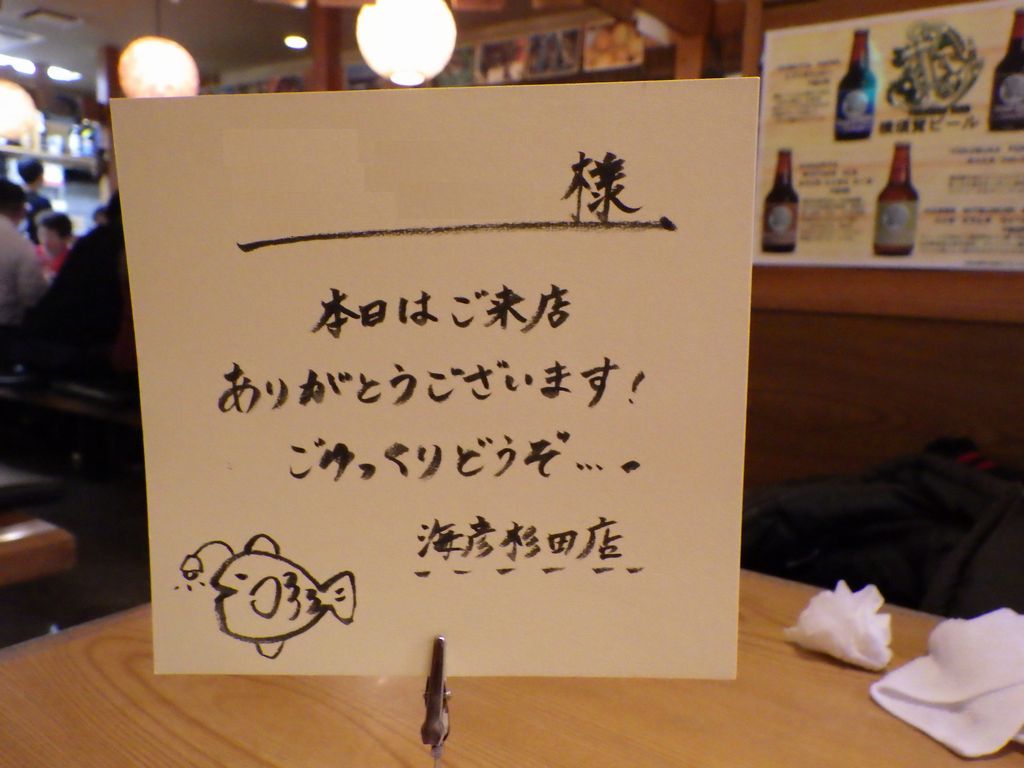 様
本日はご来店
ありがとうございます!
ごゆっくりどうぞ…。
海彦杉田店
横須賀ビール